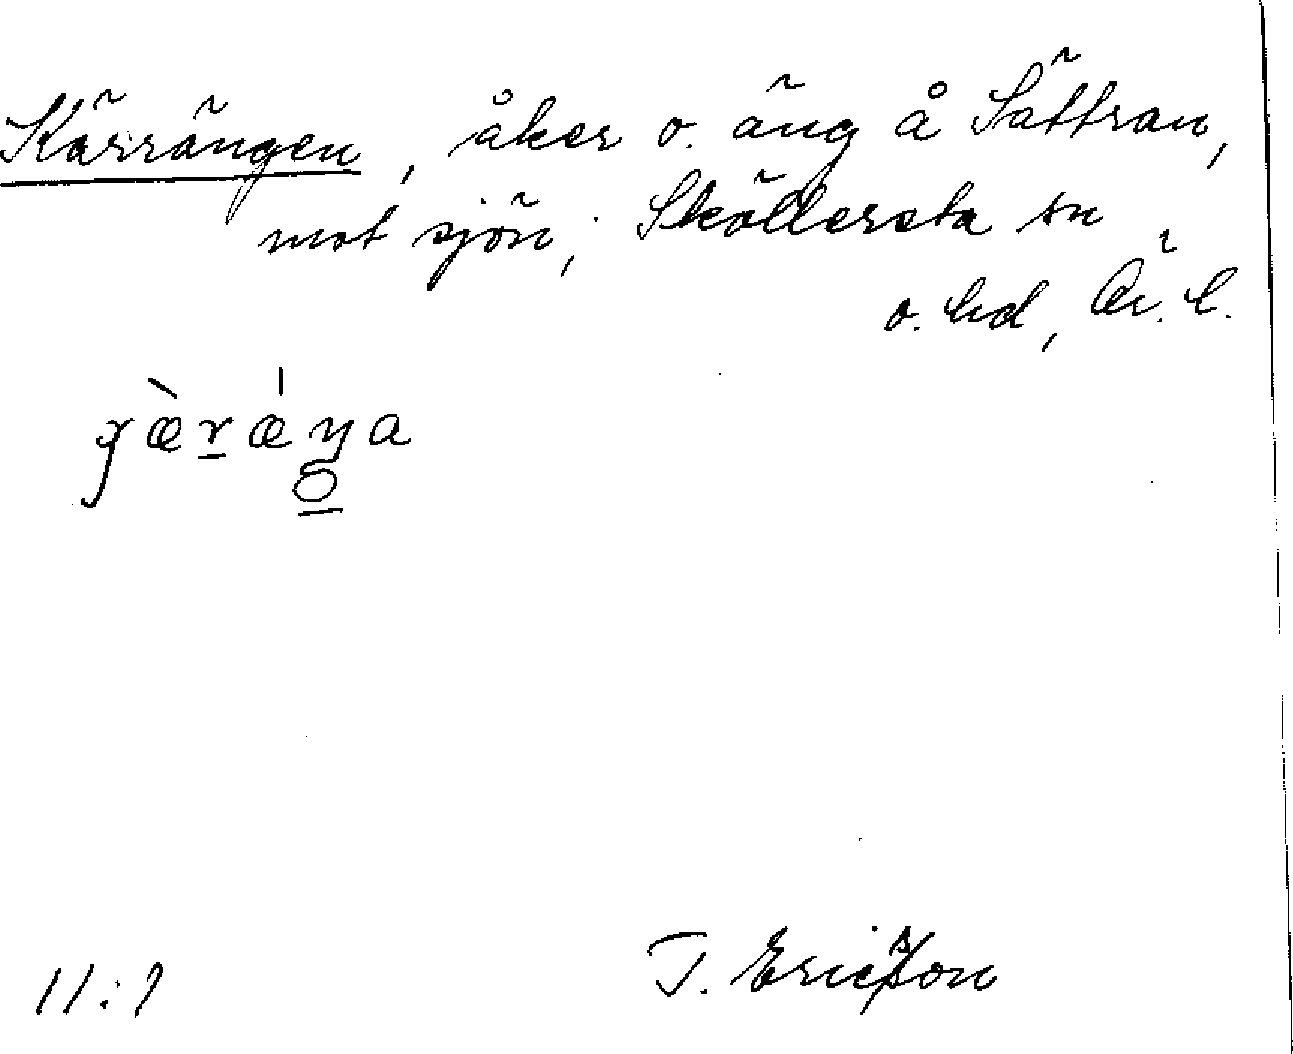 Kärrängen, åker o. äng å Sättran,
mot sjön; Sköllersta sn
o. hd, Ör. l.
T. Ericsson